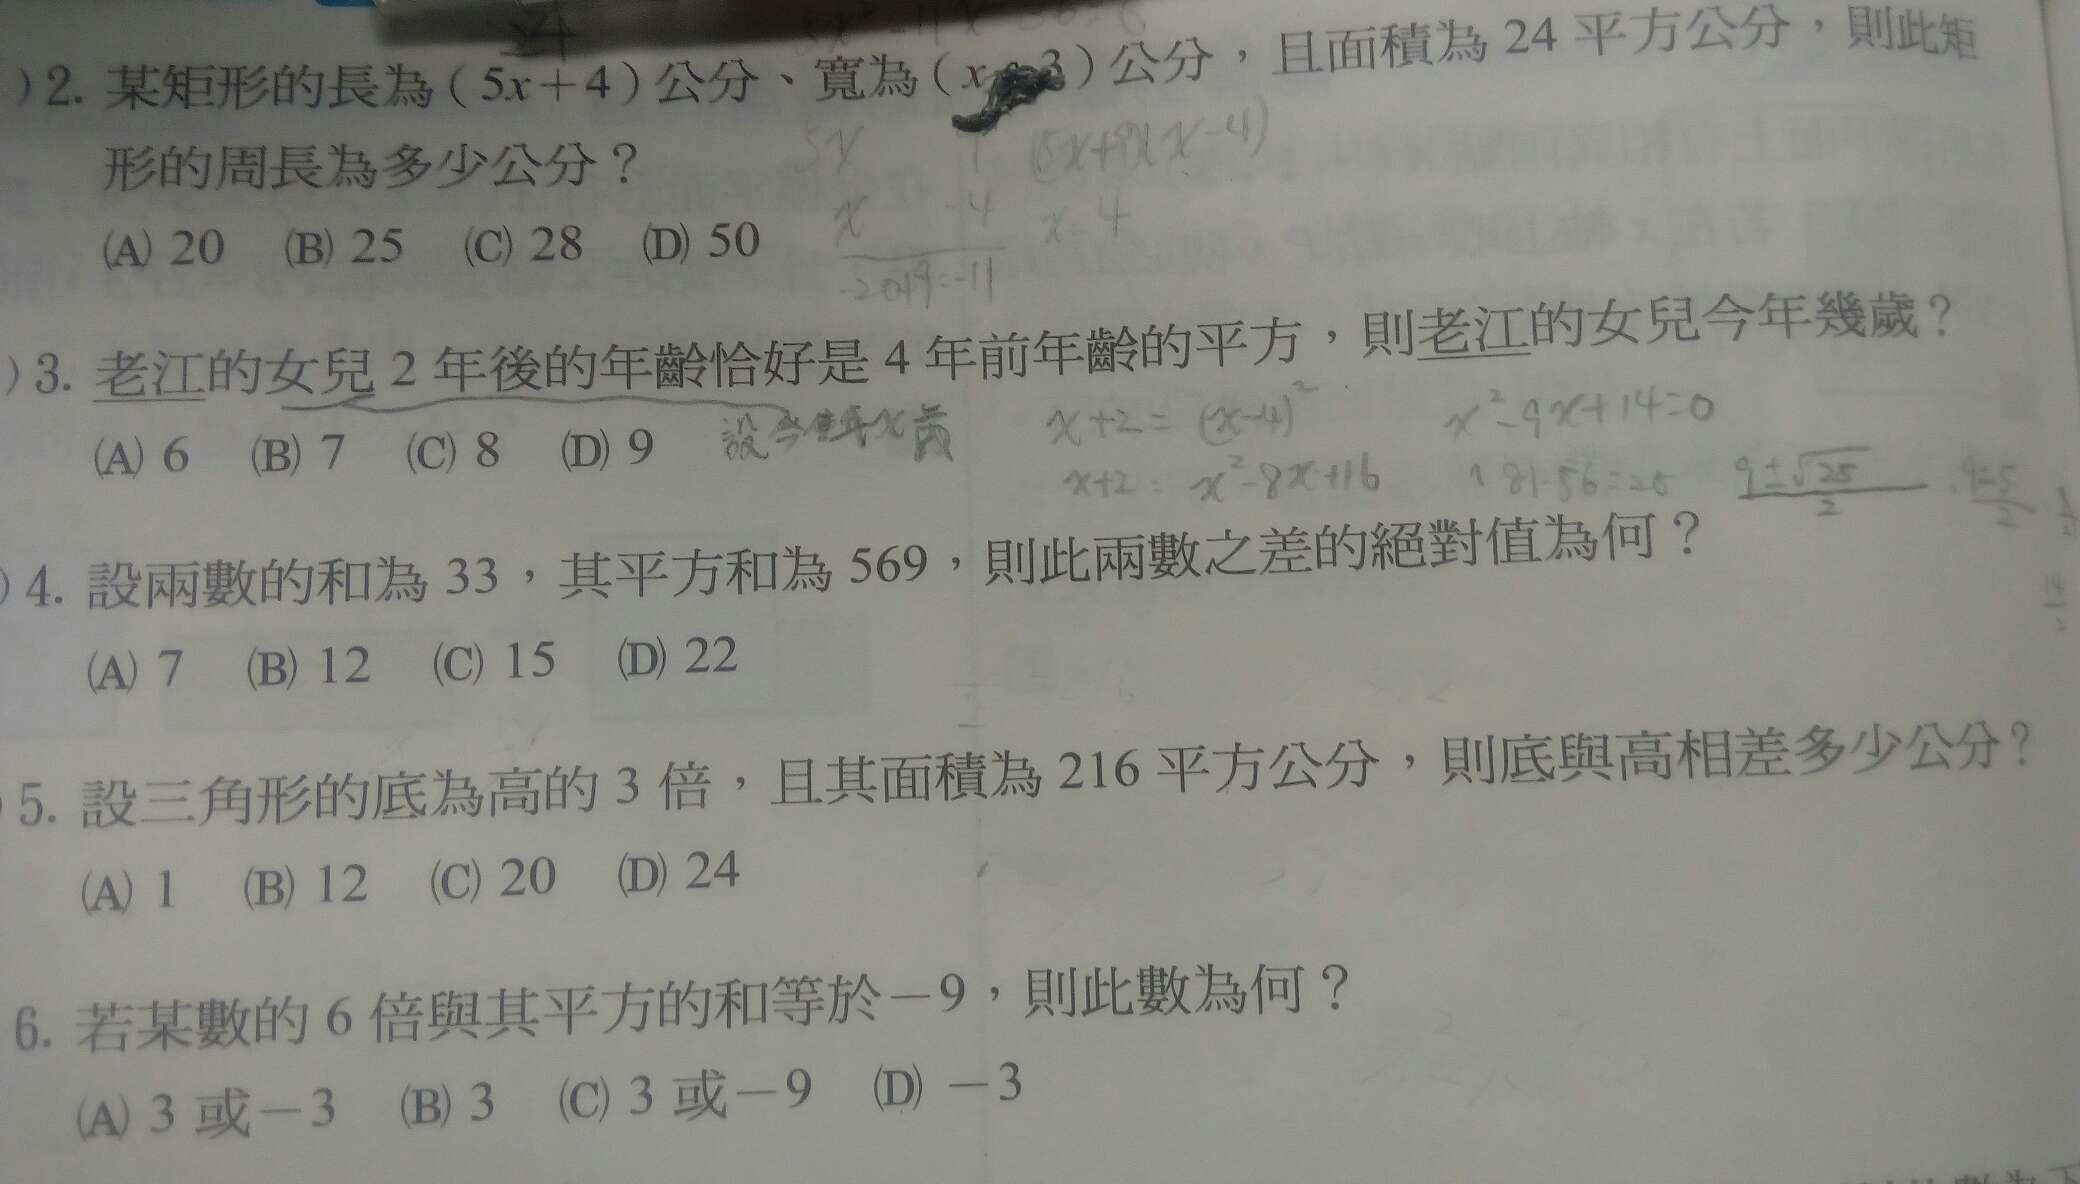 5x² -11x
)2. 某矩形的長為(5x+4)公分、寬為(x-3)公分，且面積為 24 平方公分，則此矩
形的周長為多少公分？
5x 9 (5x+9)(x-4)
x -4 x=4
-20+9=-11
(A) 20 (B) 25 (C) 28 (D) 50
)3. 老江的女兒 2 年後的年齡恰好是 4 年前年齡的平方，則老江的女兒今年幾歲？
(A) 6 (B) 7 (C) 8 (D) 9
設今年x歲 x+2=(x-4)² x²-9x+14=0
x+2=x²-8x+16 81-56=25 9±√25/2 9-5/2
)4. 設兩數的和為 33，其平方和為 569，則此兩數之差的絕對值為何？
(A) 7 (B) 12 (C) 15 (D) 22
)5. 設三角形的底為高的 3 倍，且其面積為 216 平方公分，則底與高相差多少公分？
(A) 1 (B) 12 (C) 20 (D) 24
6. 若某數的 6 倍與其平方的和等於－9，則此數為何？
(A) 3 或－3 (B) 3 (C) 3 或－9 (D) －3